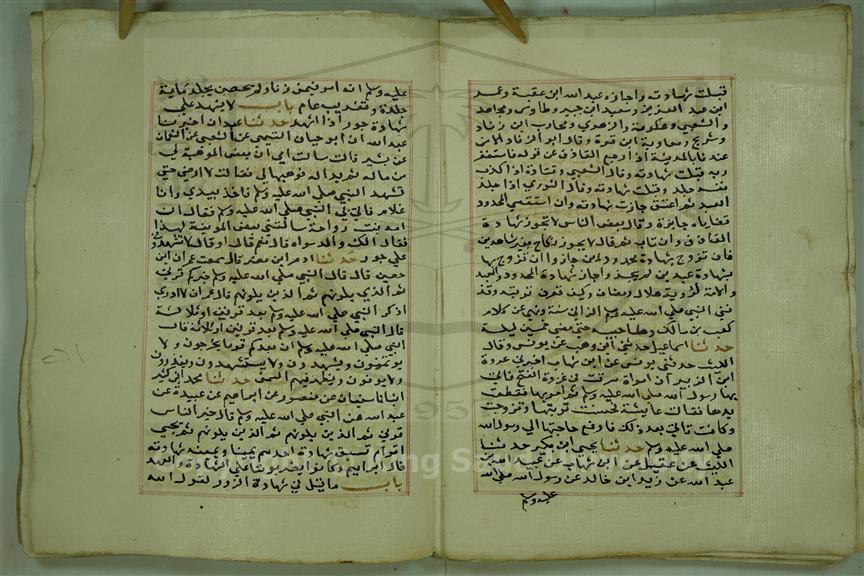 قبلت شهادته واجازه عبد الله ابن عقبة وعمر
ابن عبد العزيز وسعيد ابن جبير وطاوس ومجاهد
والشعبي وعكرمة والزهري ومحارب ابن دثار
وشريح ومعاوية ابن قرة وقال ابو الزناد الامر
عندنا بالمدينة اذا رجع القاذف عن قوله فاستغفر
ربه قبلت شهادته وقال الشعبي وقتادة اذا اكذب
نفسه جلد وقبلت شهادته وقال الثوري اذا جلد
العبد ثم اعتق جازت شهادته وان استقضي المحدود
فقضاياه جايزة وقال بعض الناس لا تجوز شهادة
القاذف وان تاب ثم قال لا يجوز نكاح بغير شاهدين
فان تزوج بشهادة محدودين جاز وان تزوج
بشهادة عبدين لم يجز واجاز شهادة المحدود والعبد
والامة لرؤية هلال رمضان وكيف تعرف توبته وقد
نفى النبي صلى الله عليه وسلم الزاني سنة ونهى عن كلام
كعب بن مالك وصاحبيه حتى مضى خمسين ليلة
حدثنا اسماعيل حدثني ابن وهب عن يونس وقال
الليث حدثني يونس عن ابن شهاب اخبرني عروة
ابن الزبير ان امراة سرقت في غزوة الفتح فاتي
بها رسول الله صلى الله عليه وسلم ثم امر بها فقطعت
يدها فقالت عايشة فحسنت توبتها وتزوجت
وكانت تاتي بعد ذلك فارفع حاجتها الى رسول الله
صلى الله عليه وسلم حدثنا يحيى ابن بكير حدثنا
الليث عن عقيل عن ابن شهاب عن عبيد الله بن
عبد الله عن زيد ابن خالد عن رسول الله صلى الله
عليه وسلم
عليه وسلم انه امر فيمن زنا ولم يحصن بجلد ماية
جلدة وتغريب عام باب لا يشهد على
شهادة جور اذا اشهد حدثنا عبدان اخبرنا
عبد الله انا ابو حيان التيمي عن الشعبي عن النعمان
بن بشير قال سالت امي ابي بعض الموهبة لي
من ماله ثم بدا له فوهبها لي فقالت لا ارضى حتى
تشهد النبي صلى الله عليه وسلم فاخذ بيدي وانا
غلام فاتى بي النبي صلى الله عليه وسلم فقال ان
امه بنت رواحة سالتني بعض الموهبة لهذا
فقال الك ولد سواه قال نعم قال اوقال لا تشهدني
على جور حدثنا ادم ابن
حصين قال قال النبي صلى الله عليه وسلم خيركم قرني
ثم الذين يلونهم ثم الذين يلونهم قال عمران لا ادري
اذكر النبي صلى الله عليه وسلم بعد قرنين او ثلاثة
قال النبي صلى الله عليه وسلم ان بعدكم قوما يخونون ولا
يوتمنون ويشهدون ولا يستشهدون وينذرون
ولا يوفون ويظهر فيهم السمن حدثنا محمد ابن كثير
انبانا سفيان عن منصور عن ابراهيم عن عبيدة عن
عبد الله عن النبي صلى الله عليه وسلم قال خير الناس
قرني ثم الذين يلونهم ثم الذين يلونهم ثم يجي
اقوام تسبق شهادة احدهم يمينه ويمينه شهادته
قال ابراهيم وكانوا يضربوننا على الشهادة والعهد
باب ما قيل في شهادة الزور لقول الله